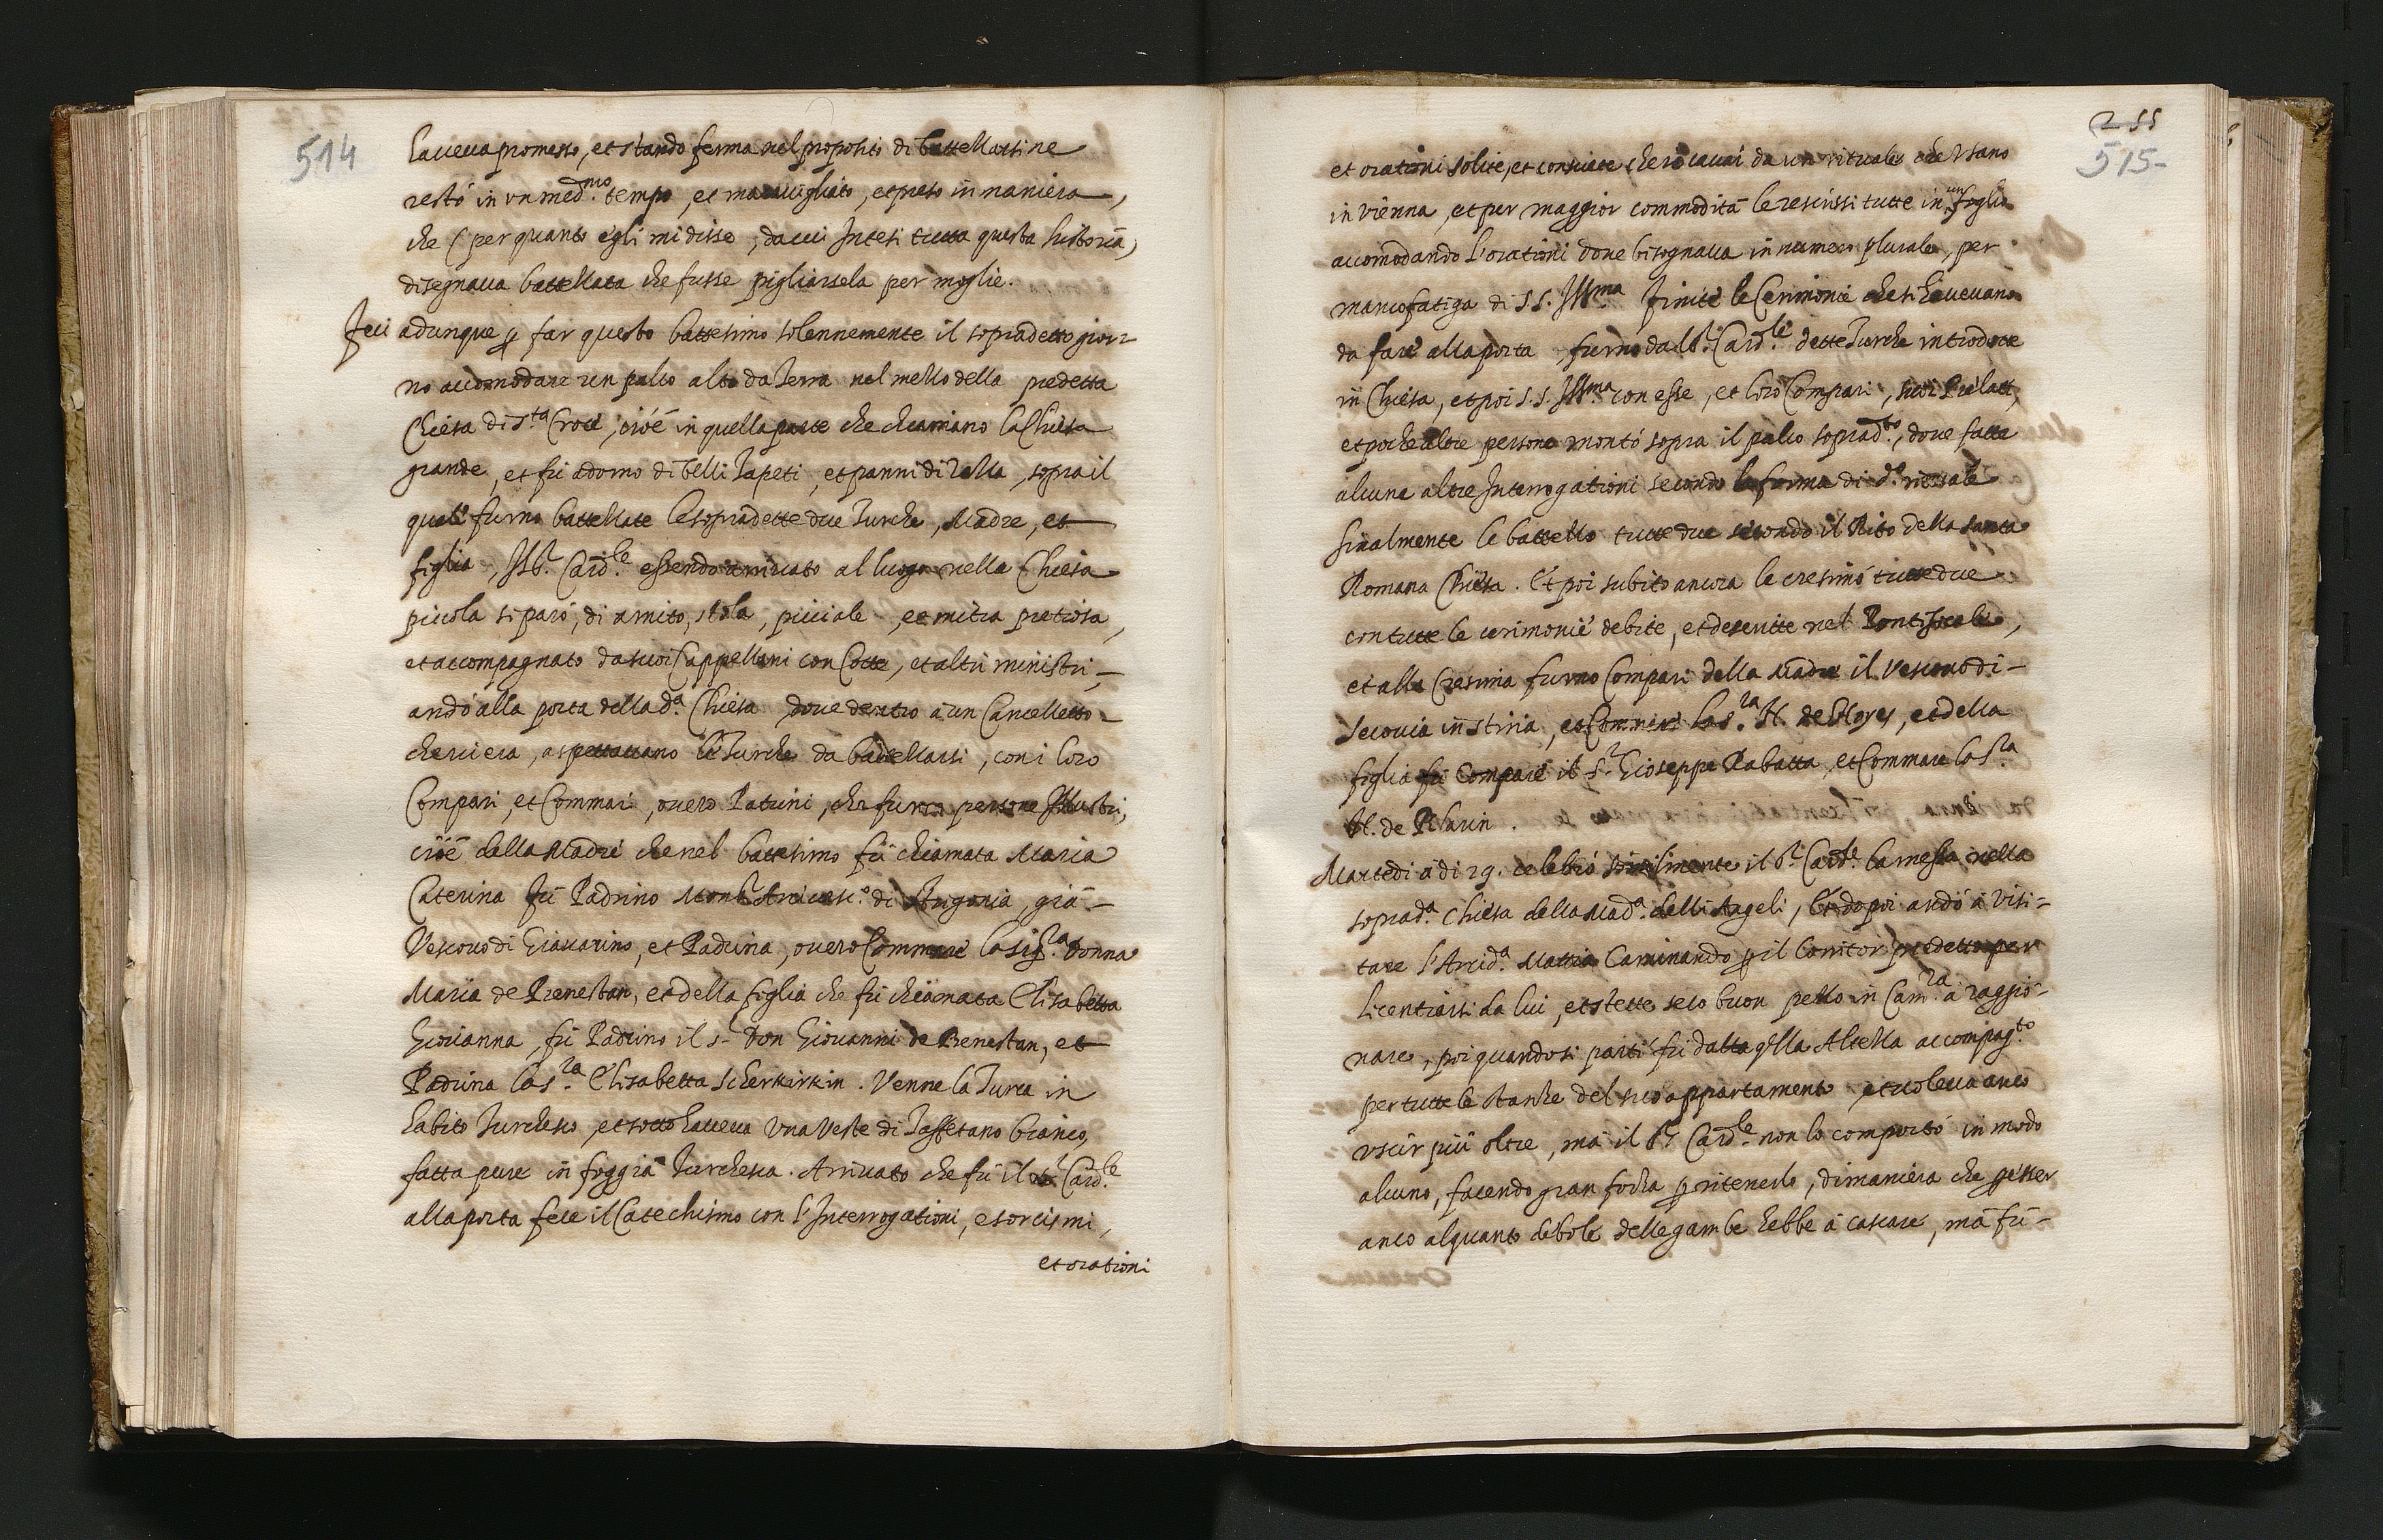 514
haueua promesso, et stando ferma nel proposito di battezzarsi ne
restò in un med.mo tempo, et marauigliato, et preso in maniera,
che (per quanto egli mi disse, da cui Intesi tutta questa historia)
disegnaua battezzata che fusse pigliarsela per moglie.
Feci adunque p far questo battesimo solennemente il sopradetto gior=
no accomodare un palco alto da Terra nel mezzo della predetta
Chiesa di S.ta Croce, cioè in quella parte che chiamano la Chiesa
grande, et fu adorno di belli Tapeti, et panni di razza, sopra il
quale furno battezzate le sopradette due Turche, Madre, et
figlia, Ill. Card.le essendo arriuato al luogo nella Chiesa
piccola si parò, di amito, stola, piuiale, et mitra pretiosa,
et accompagnato da suoi Cappellani con Cotte, et altri ministri,
andò alla porta della d.a Chiesa doue dentro à un Cancelletto
che vi era, aspettauano le Turche da battezzarsi, con i loro
Compari, et Commari, ouero Patrini, che furno persone Illustri,
cioè della Madre che nel battesimo fù chiamata Maria
Caterina fù Padrino Mons.r Arciuesc.o di Strigonia, già
Vescouo di Giauarino, et Padrina, ouero Commare la Sig.ra Donna
Maria de Prenestan, et della figlia che fù chiamata Elisabetta
Giouanna, fù Padrino il S.r Don Giouanni de Prenestan, et
Padrina la S.ra Elisabetta Scherkirkin. Venne la Turca in
habito Turchesco, et sotto haueua una veste di Taffetano bianco,
fatta pure in foggia Turchesca. Arriuato che fù il Card.le
alla porta fece il Catechismo con l'Interrogationi, esorcismi,
et orationi
255
515-
et orationi solite, et consuete che io cauai da un rituale, che usano
in Vienna, et per maggior commodità le rescrissi tutte in un foglio
accomodando l'orationi doue bisognaua in numero plurale, per
manco fatiga di S.S. Ill.ma Finite le Cerimonie che si haueuano
da fare alla porta, furno dal S.r Card.le dette Turche introdotte
in Chiesa, et poi S.S. Ill.ma con esse, et loro Compari, suoi Prelati,
et poche altre persone montò sopra il palco soprad.to, doue fatte
alcune altre Interrogationi secondo la forma di d.o rituale
finalmente le battezzò tutte due secondo il Rito della santa
Romana Chiesa. Et poi subito ancora le cresimò tutte due
con tutte le cerimonie debite, et descritte nel Pontificale,
et alla Cresima furno Compari della Madre il Vescouo di
Secouia in Stiria, et Commare la S.ra H. de Hoyes, et della
figlia fù Compare il S.r Gioseppe Rabatta, et Commare la S.ra
H. de
Martedi à di 29. celebrò similmente il S.r Card.le la messa nella
soprad.a Chiesa della Mad.a delli Angeli, Et dopoi andò à visi=
tare l'Arcid.a Mattia Caminando p il Corritor predetto per
licentiarsi da lui, et stette seco buon pezzo in Cam.ra à raggio=
nare, poi quando si partì fù dalla qlla Altezza accompag.to
per tutte le stanze del suo appartamento et uoleua anco
uscir più oltre, mà il S.r Card.le non lo comportò in modo
alcuno, facendo gran forza p ritenerlo, di maniera che p esser
anco alquanto debole delle gambe hebbe à cascare, mà fù